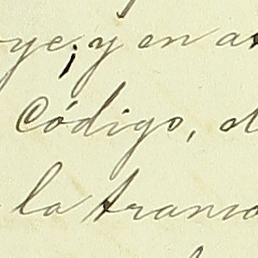 oye; y en a
Código, d
la trans